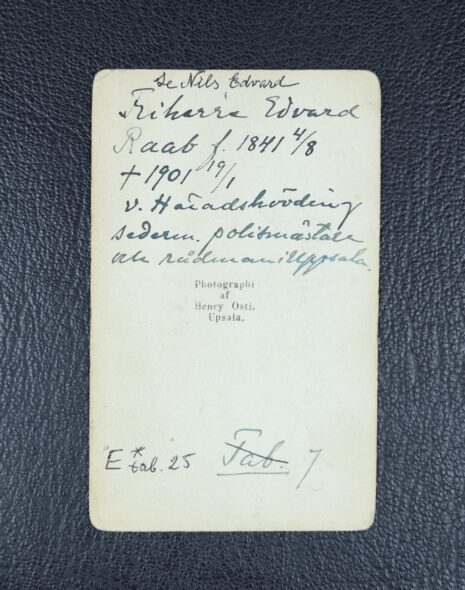 Se Nils Edvard
Friherre Edvard
Raab f. 1841 4/8
+ 1901 19/1
v. Häradshövding
sederm. polismästare
och rådman i Uppsala.
Photographi
af
Henry Osti.
Upsala.
E * tab. 25 Tab. 7